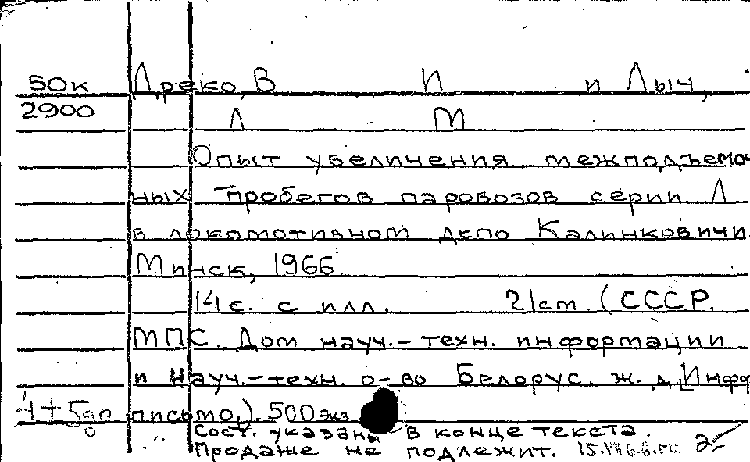 50к Дреко, В И и Лыч,
2900 Л М
Опыт увеличения межподъемоч
ных пробегов паровозов серии Л
в локомотивном депо Калинковичи.
Минск, 1966
14 с. с илл. 21 cm. (СССР.
МПС. Дом науч.-техн. информации
и Науч.-техн. о-во Белорус. ж. д. Инфор
письмо,). 500 экз
Сост. указаны в конце текста
Продаже не подлежит.